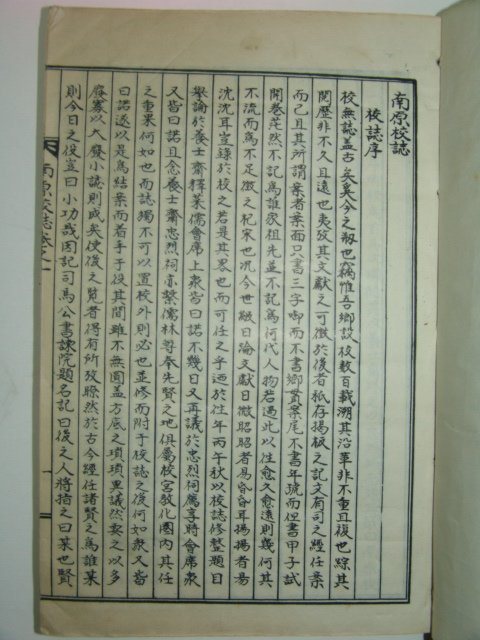 南原校誌
校誌序
校無誌盖古矣奚今之刱也竊惟吾鄕設校數百載溯其沿革非不重且復也踪其
閱歷非不久且遠也夷攷其文獻之可徵於後者秖存揭板之記文有司之經任案
而已且其所謂案者案面只書三字啣而不書鄕貫案尾不書年號而但書甲子試
開卷茫然不記爲誰家祖先並不記爲何代人物若過此以往愈久愈遠則幾何其
不流而爲不足徵之杞宋也况今世級日淪文獻日微昭昭者易昏昏耳揚揚者易
沈沈耳豈錄於校之若是其畧也而可任之乎迺於往年丙午秋以校誌修整題目
擧論於養士齋釋菜儒會席上衆皆曰諾不幾日又再議於忠烈祠薦享時會席衆
又皆曰諾且念養士齋忠烈祠亦繫儒林尊奉先賢之地俱屬校宮敎化圈內其任
之重果何如也而誌獨不可以置校外則必也並修而附于校誌之後何如衆又皆
曰諾遂以是爲結案而着手于役其間雖不無圓盖方底之項項異議然要之以多
廢寡以大廢小誌則成矣使後之覧者得有所攷瞭然於古今經任諸賢之爲誰某
則今日之役豈曰小功哉因記司馬公書諫院題名記曰後之人將指之曰某也賢
南原校誌卷之一